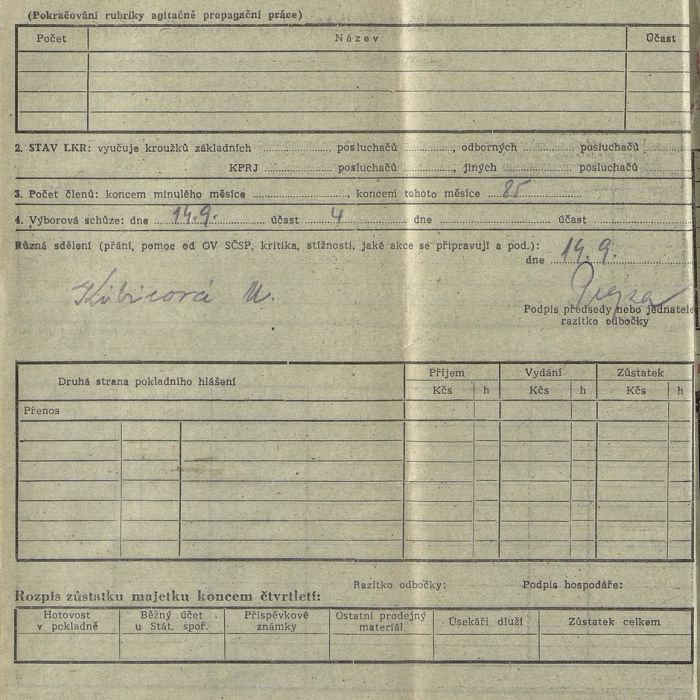 (Pokračování rubriky agitačně propagační práce)
Počet Název Účast
2. STAV LKR: vyučuje kroužků základních posluchačů , odborných posluchačů
KPRJ posluchačů , jiných posluchačů
3. Počet členů: koncem minulého měsíce , koncem tohoto měsíce 85
4. Výborová schůze: dne 14.9. účast 4 dne účast
Různá sdělení (přání, pomoc od OV SČSP, kritika, stížnosti, jaké akce se připravují a pod.):
dne 14.9.
Podpis předsedy nebo jednatele
razítko odbočky
Druhá strana pokladního hlášení Příjem Vydání Zůstatek
Kčs h Kčs h Kčs h
Přenos
Razítko odbočky: Podpis hospodáře:
Rozpis zůstatku majetku koncem čtvrtletí:
Hotovost v pokladně Běžný účet u Stát. spoř. Příspěvkové známky Ostatní prodejný materiál Úsekáři dluží Zůstatek celkem